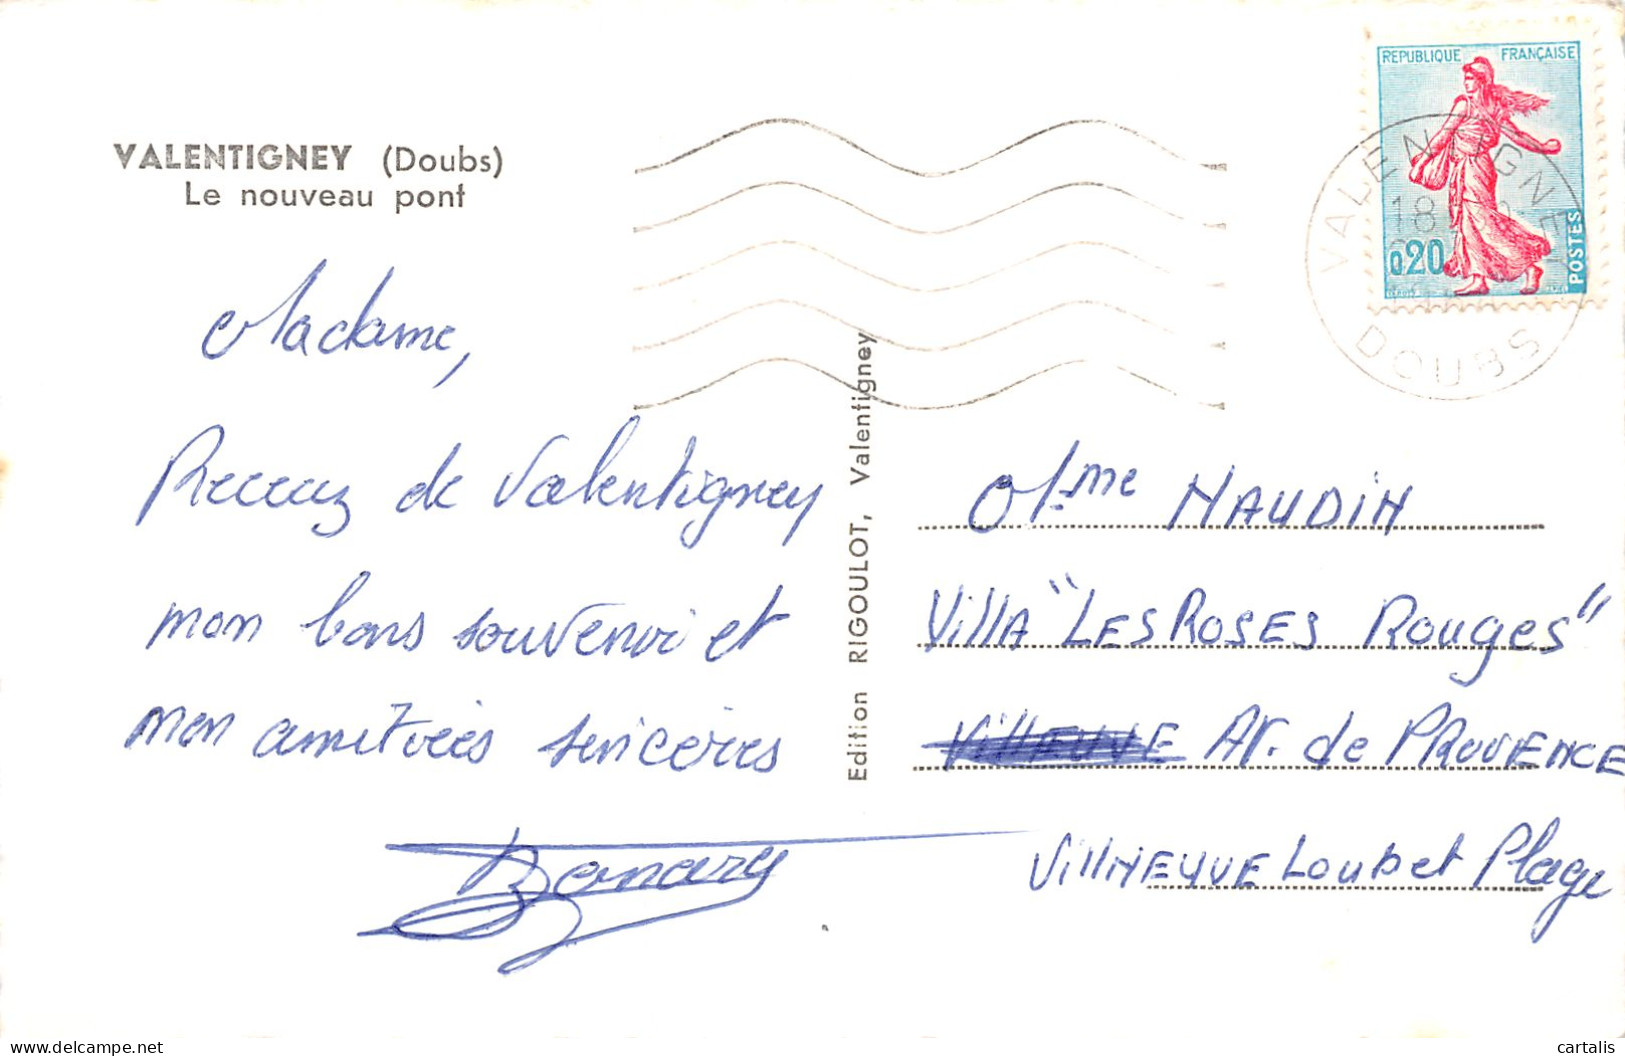 VALENTIGNEY (Doubs)
Le nouveau pont
REPUBLIQUE FRANÇAISE
0,20
POSTES
VALENTIGNEY
18
DOUBS
Madame,
Recevez de Valentigney
mon bons souvenir et
mon amitiées sincères
Edition RIGOULOT, Valentigney
Mme NAUDIN
Villa "LES ROSES Rouges"
Av. de PROVENCE
VillNEUVE Loubet Plage
cartalis